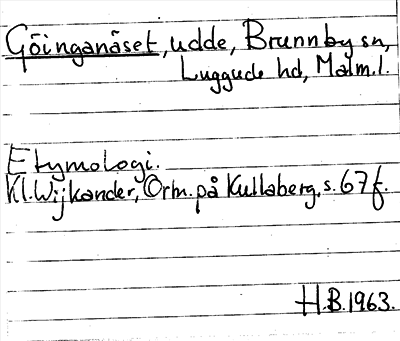 Göinganäset, udde, Brunnby sn,
Luggude hd, Malm.l.
Etymologi.
Kl. Wijkander, Ortn. på Kullaberg, s. 67 f.
H.B. 1963.